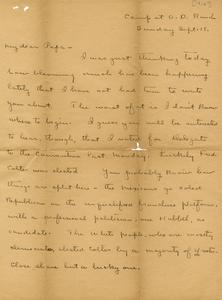 Camp at O.D. Ranch
Sunday Sept. 18.
My dear Papa -
I was just thinking today
how blooming much has been happening
lately that I have not had time to write
you about. The worst of it is I don't know
where to begin. I guess you will be interested
to hear, though, that I voted for delegate
to the Convention last Monday. Luckily Fred
Colter was elected. You probably know how
things are split here - the Mexicans go solid
Republican on the unqualified franchise platform,
with a professional politician, one Hubbell, as
candidate. The white people, who are mostly
democrats, elected Colter by a majority of 4 votes.
Close shave but a lucky one.